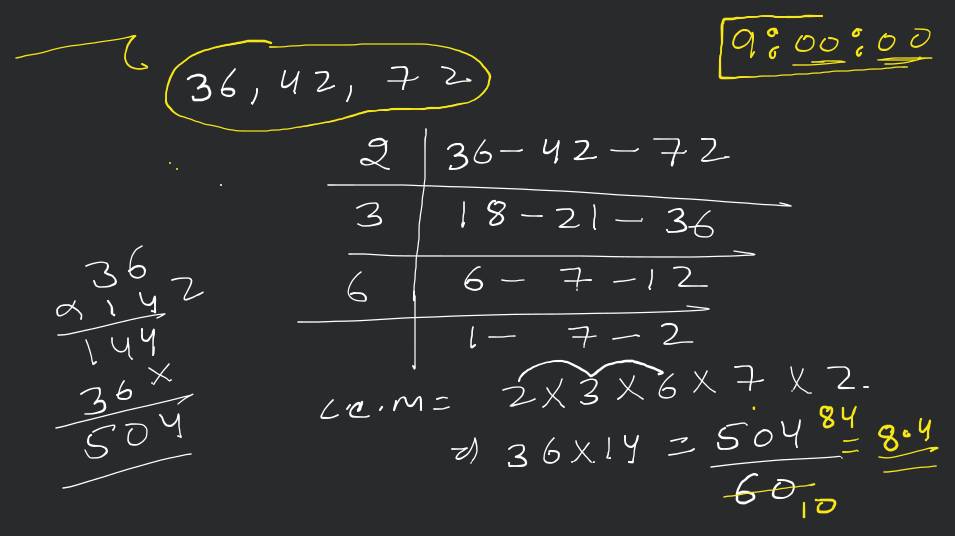 9:00:00
36, 42, 72
2 | 36 - 42 - 72
3 | 18 - 21 - 36
6 | 6 - 7 - 12
1 - 7 - 2
36
x 14 2
144
36 x
504
L.C.M = 2 x 3 x 6 x 7 x 2.
⇒ 36 x 14 = 504 84 = 8.4
60 10